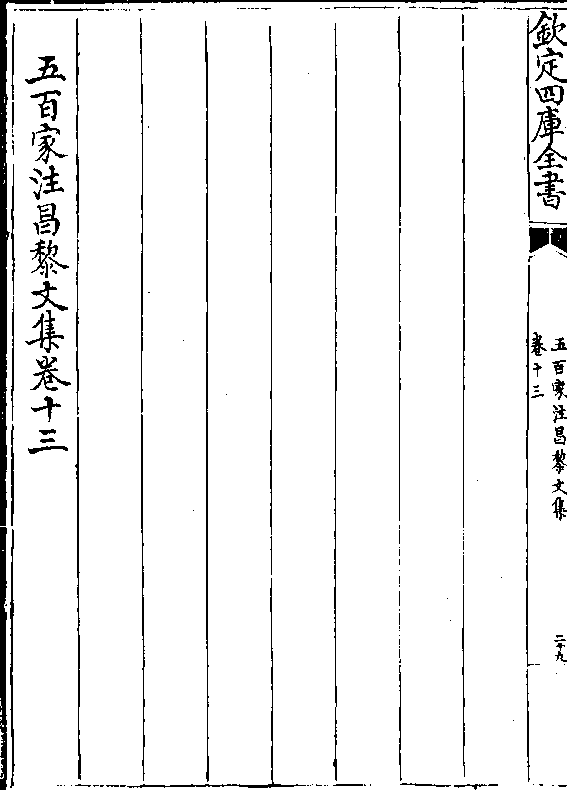 欽定四庫全書
五百家注昌黎文集
卷十三
二十九
五百家注昌黎文集卷十三